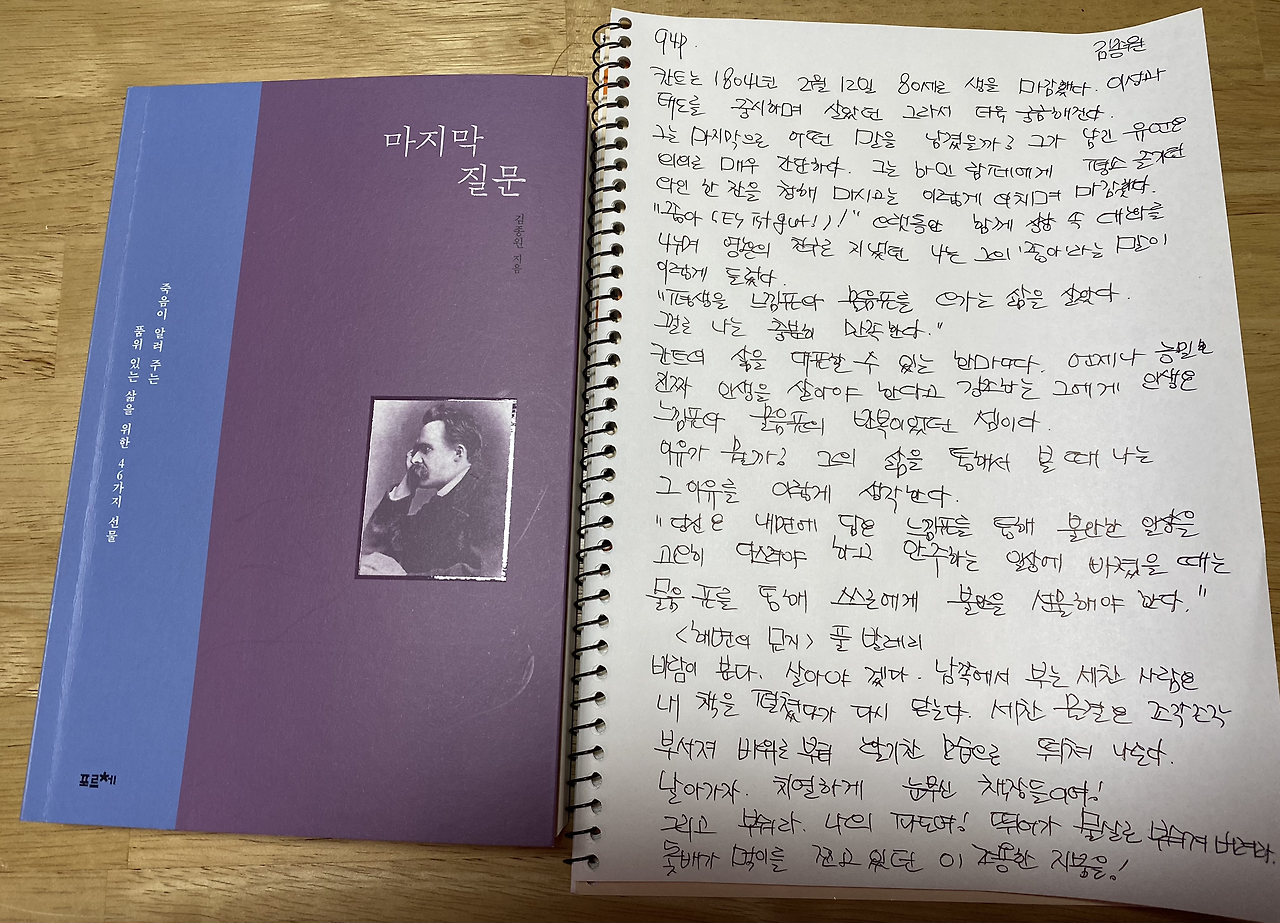 마지막
질문
김종원 지음
죽음이 알려 주는
품위 있는 삶을 위한 46가지 선물
포르체
94p.
김종원
칸트는 1804년 2월 12일 80세로 생을 마감했다. 이성과
태도를 중시하며 살았던 그라서 더욱 궁금해진다.
그는 마지막으로 어떤 말을 남겼을까? 그가 남긴 유언은
의외로 매우 간단하다. 그는 하인 람페에게 평소 즐기던
와인 한 잔을 청해 마시고는 이렇게 외치며 마감했다.
"좋아 (Es ist gut!)!" 오랫동안 함께 상상 속 대화를
나누며 영혼의 친구로 지냈던 나는 그의 '좋아'라는 말이
이렇게 들렸다.
"평생을 느낌표와 물음표를 오가는 삶을 살았다.
결로 나는 충분히 만족한다."
칸트의 삶을 대표할 수 있는 한마디다. 언제나
진짜 인생을 살아야 한다고 강조하는 그에게 인생은
느낌표와 물음표의 반복이었던 셈이다.
이유가 뭘까? 그의 삶을 통해서 볼 때 나는
그 이유를 이렇게 생각한다.
"당신은 내면에 담은 느낌표를 통해 불안한 일상을
고요히 다스려야 하고 안주하는 일상에 빠졌을 때는
물음표를 통해 스스로에게 불안을 선물해야 한다."
<해변의 묘지> 폴 발레리
바람이 분다. 살아야 겠다. 남쪽에서 부는 세찬 사람은
내 책을 펼쳤다가 다시 닫는다. 세찬 물결은 조각조각
부서져 바위로부터 활기찬 모습으로 뛰쳐 나온다.
날아가자. 치열하게 눈부신 책장들이여!
그리고 부숴라. 나의 파도여! 뛰어가 물살로 부숴져 버려라.
돛배가 먹이를 쪼고 있던 이 조용한 지붕을!